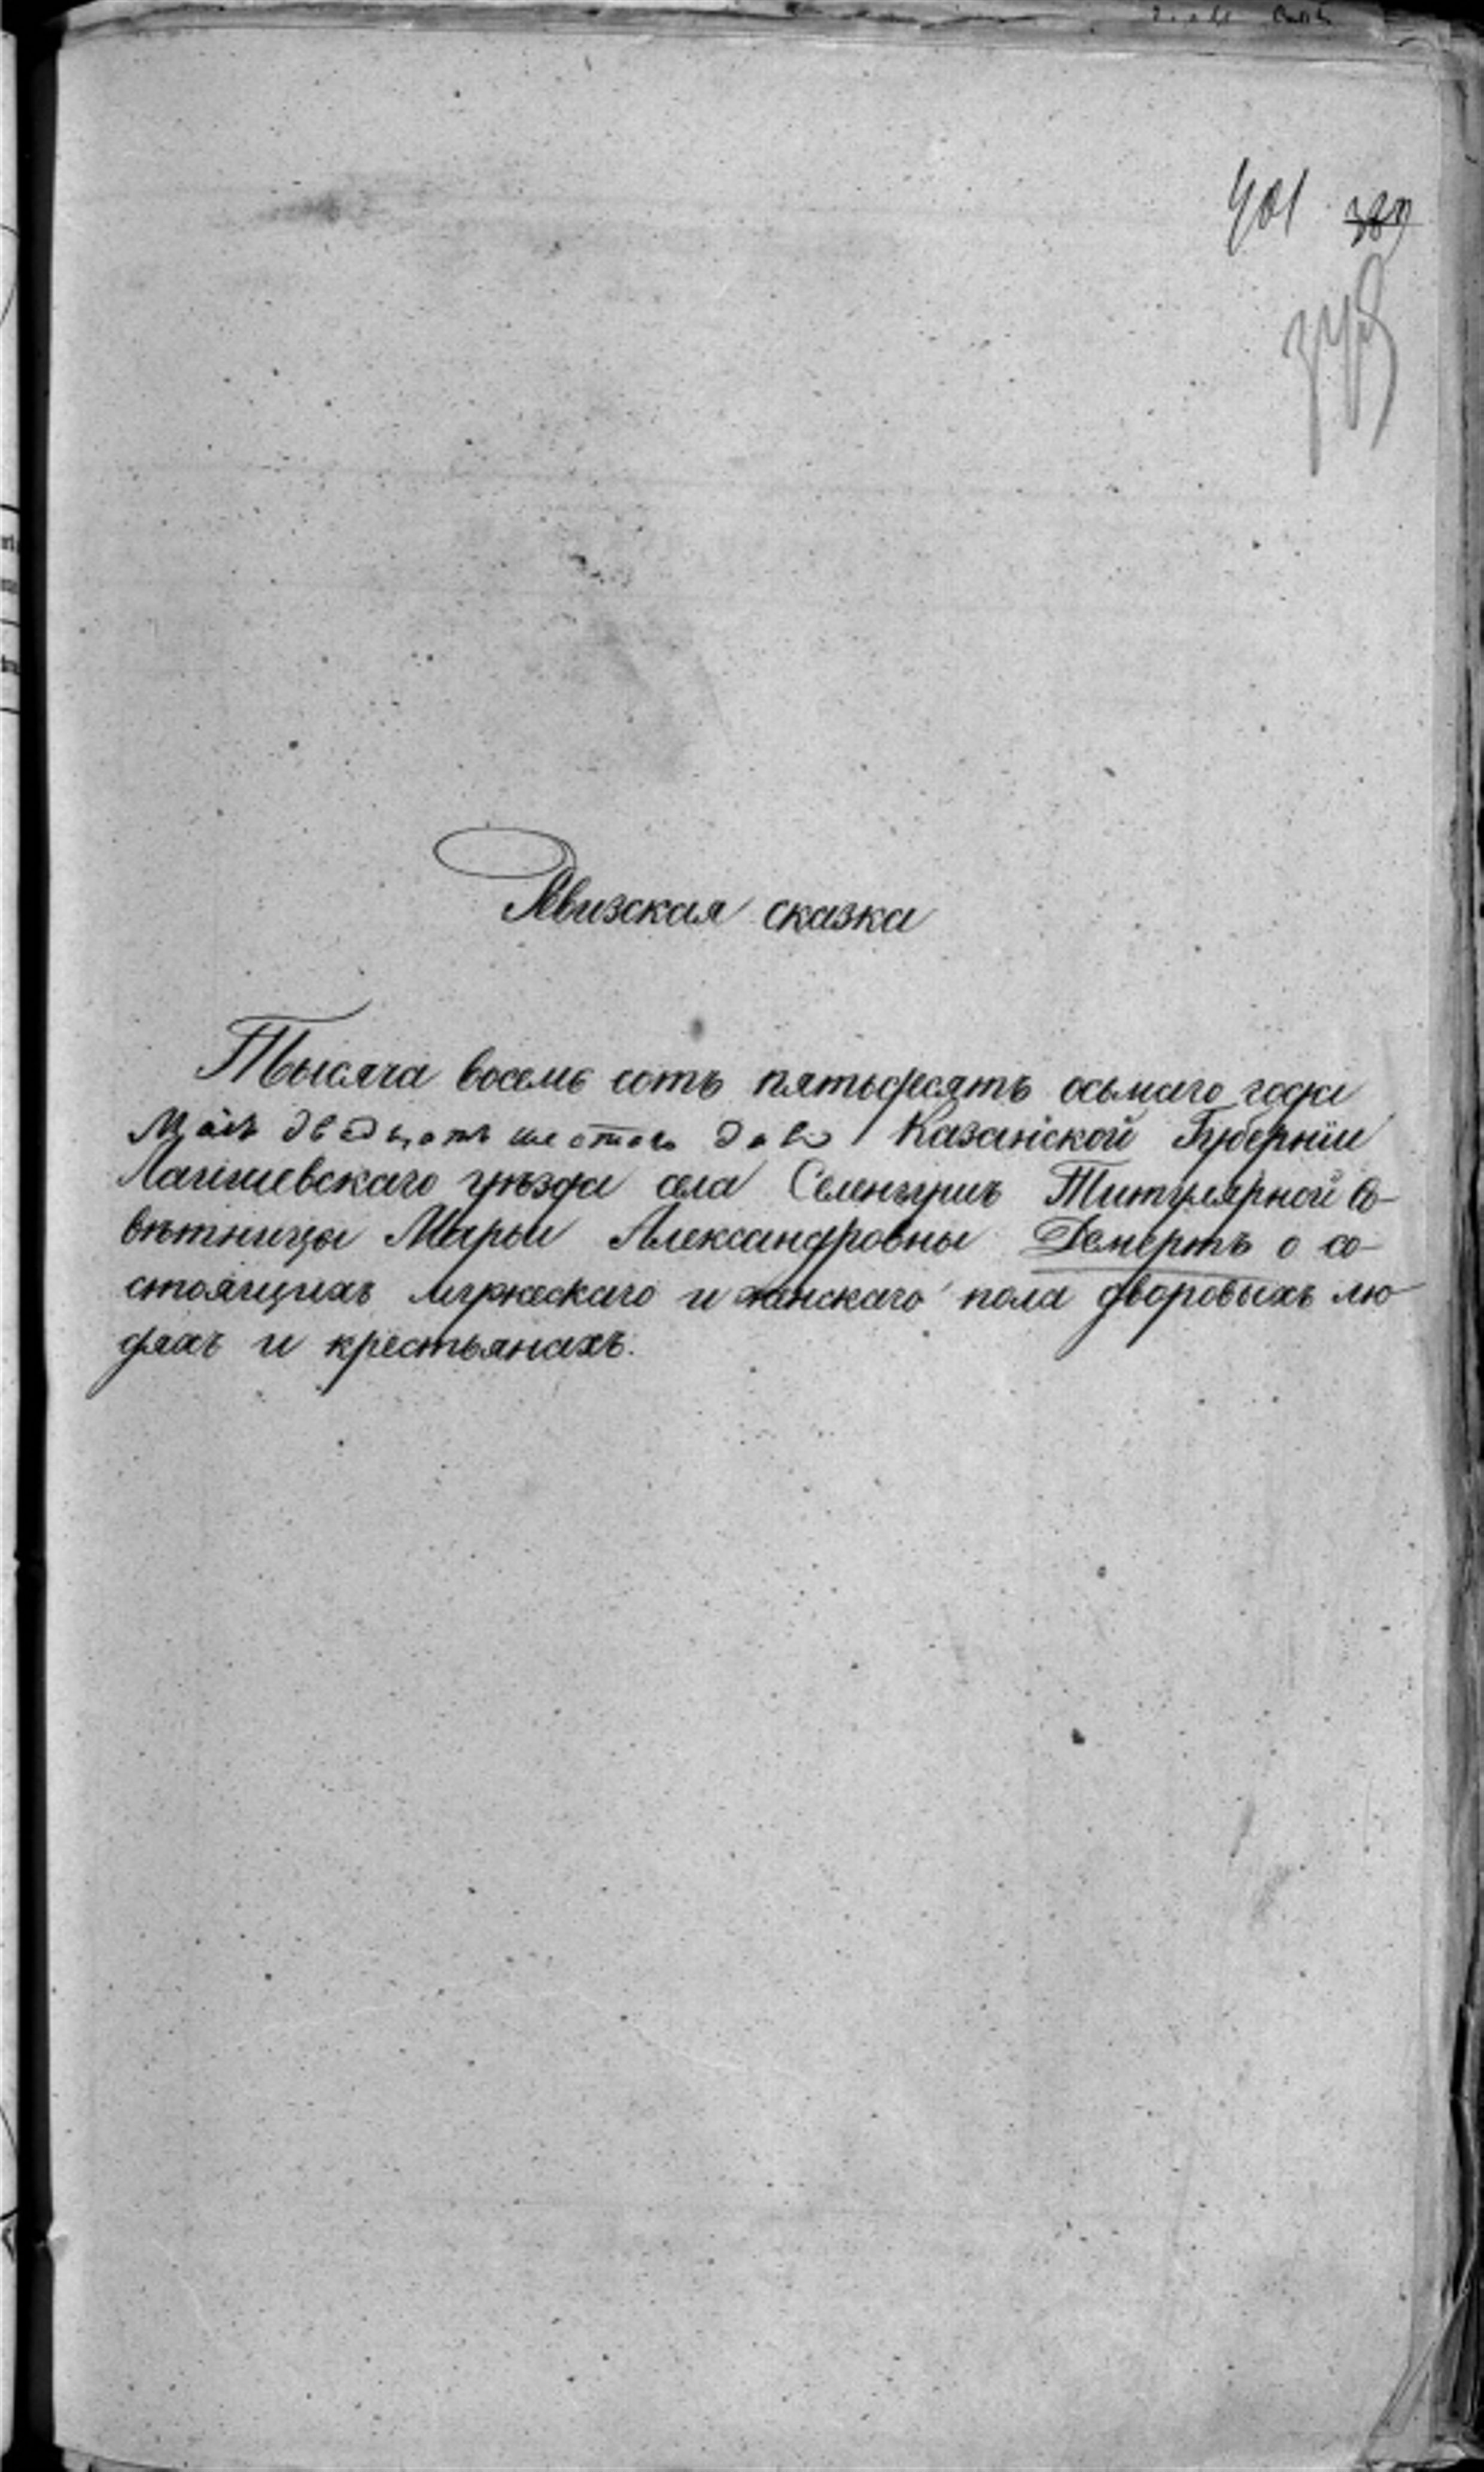 401 389
Ревизская сказка
Тысяча восемь сотъ пятьдесятъ осьмаго года
Маія двадцать шестого дня Казанской Губерніи
Лаишевскаго уѣзда села Селенгушъ Титулярной Со-
вѣтницы Марьи Александровны Демертъ о со-
стоящихъ мужескаго и женскаго пола дворовыхъ лю-
дяхъ и крестьянахъ.